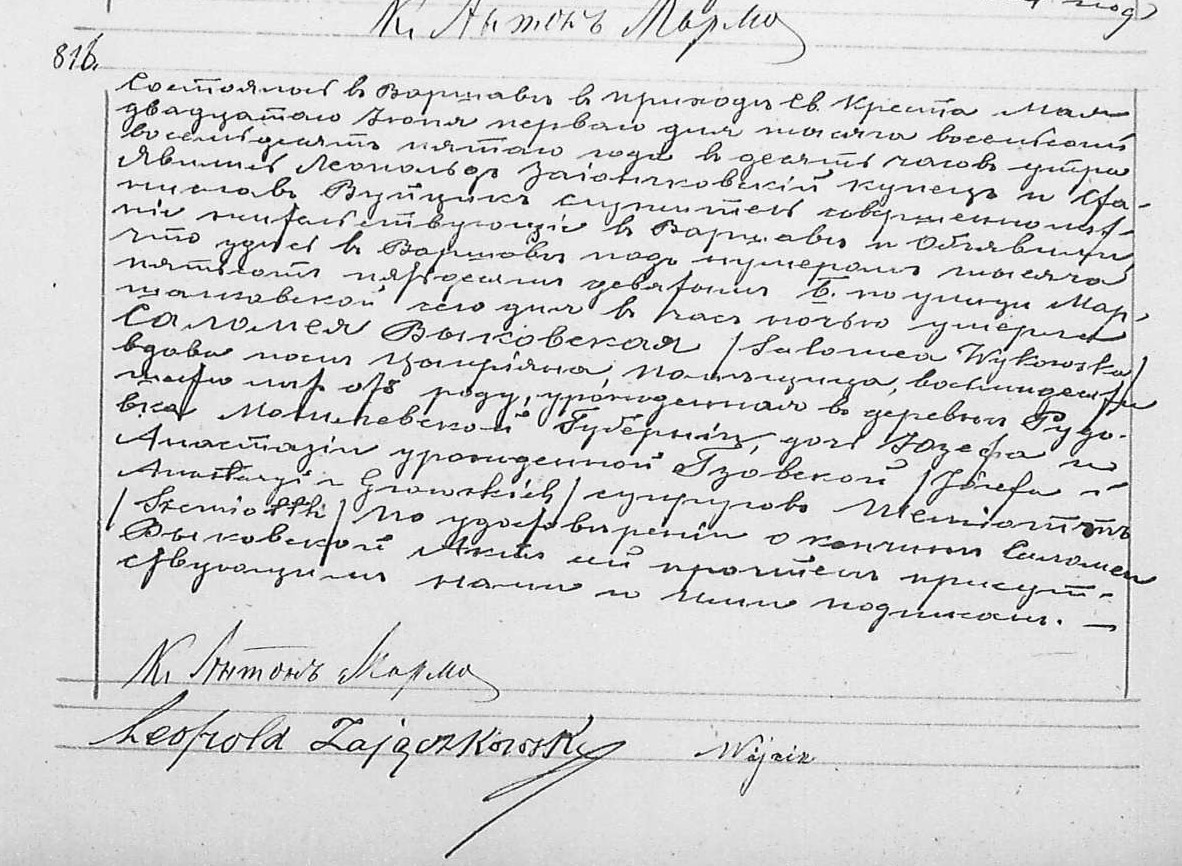 К. Антонъ Мармо
816.
Состоялось въ Варшавѣ въ приходѣ Св Креста Мая
двадцатаго Іюня перваго дня тысяча восемьсотъ
восемьдесятъ пятаго года въ десять часовъ утра
Явились Леопольдъ Заіончковскій купецъ и Ста-
ниславъ Вуйцикъ служитель совершеннолѣт-
ніе жительствующіе въ Варшавѣ и Объявили,
что здѣсь въ Варшавѣ подъ нумеромъ тысяча
пятьсотъ пятьдесятъ девятымъ Б. по улицѣ Мар-
шалковской сего дня въ часъ ночью умерла
Саломея Выковская /Salomea Wykowska/
вдова послѣ Ципріяна, помѣщица, восмидесяти
лѣтъ отъ роду, урожденная въ деревнѣ Гудо-
вка Могилевской Губерніи, дочь Юзефа и
Анастазіи урожденной Гзовской /Józefa i
Anastazyi z Gzowskich/ супруговъ Шеміоттъ
/Szemiotth/ По удостовѣреніи о кончинѣ Саломеи
Выковской Актъ сей прочтенъ присут-
ствующимъ нами и ими подписанъ. —
К. Антонъ Мармо
Leopold Zajączkowski Wójcik